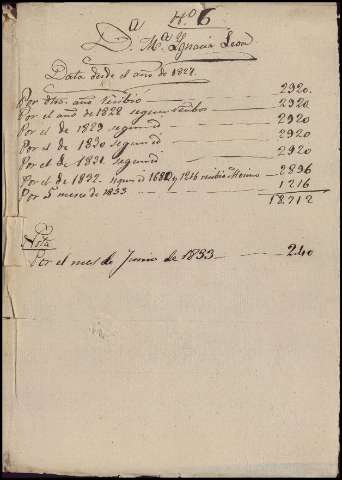 N.º 6
D.ª M.ª Ygnacia Leon
Data desde el año de 1827.
Por dho. año recibió 2920.
Por el año de 1828 segun recibos 2920
Por el de 1829 segun id 2920
Por el de 1830 segun id 2920
Por el de 1831 segun id 2920
Por el de 1832 segun id 1680 y 1216 recibio 2896
Por 5 meses de 1833 1216
18712
Nota
Por el mes de Junio de 1833 240